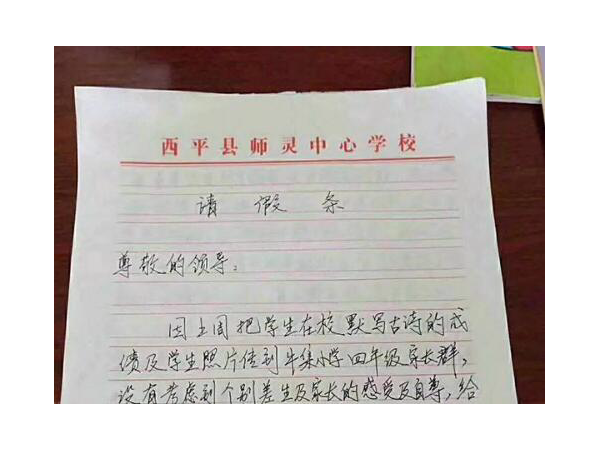 西平县师灵中心学校
请假条
尊敬的领导：
因上周把学生在校默写古诗的成
绩及学生照片传到牛集小学四年级家长群，
没有考虑到个别差生及家长的感受及自尊，给